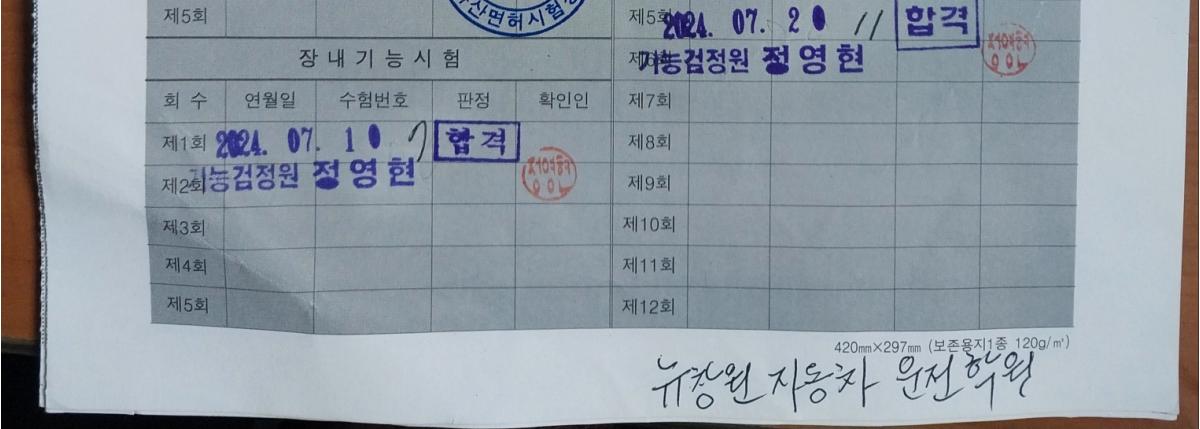 제5회
산면허시험
제5회 2024. 07. 20 11 합격
제6회 기능검정원 정영현
장내기능시험
회 수 연월일 수험번호 판정 확인인
제1회 2024. 07. 10 7 합격
제2회 기능검정원 정영현
제3회
제4회
제5회
제7회
제8회
제9회
제10회
제11회
제12회
420㎜×297㎜ (보존용지1종 120g/㎡)
뉴창원 자동차 운전학원